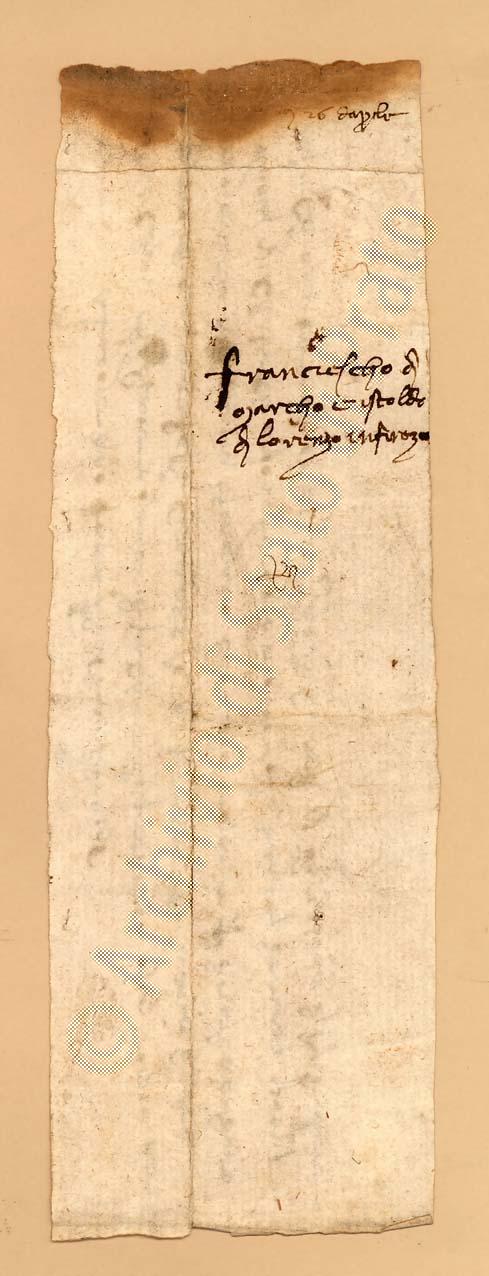 26 d'aprile
Franciescho di
Marcho e Istoldo
di Lorenzo in Firenze
© Archivio di Stato di Prato